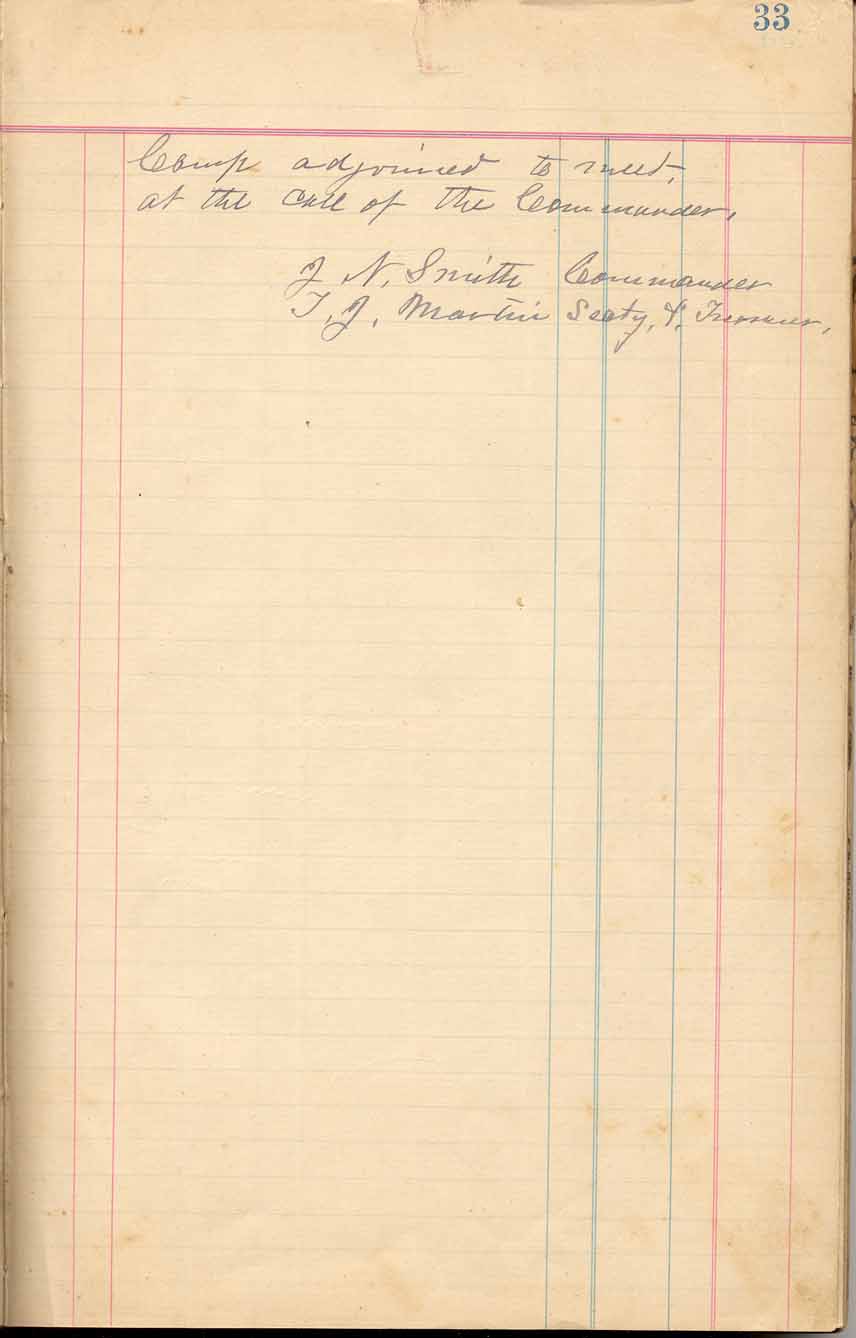 33
Camp adjoined to meet,
at the call of the Commander,
J. N. Smith Commander
T. J. Martin Secty, &, Treasurer,